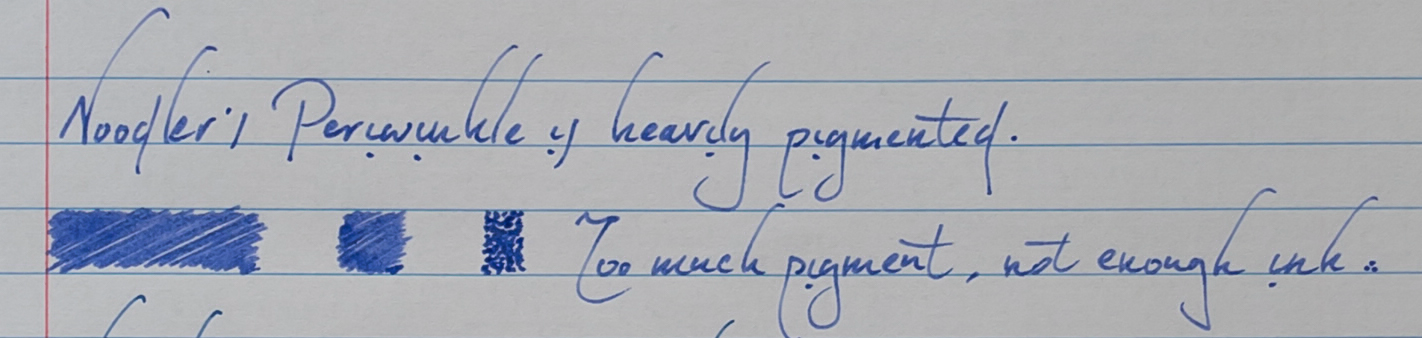 Noodler's Periwinkle is heavily pigmented.
Too much pigment, not enough ink..